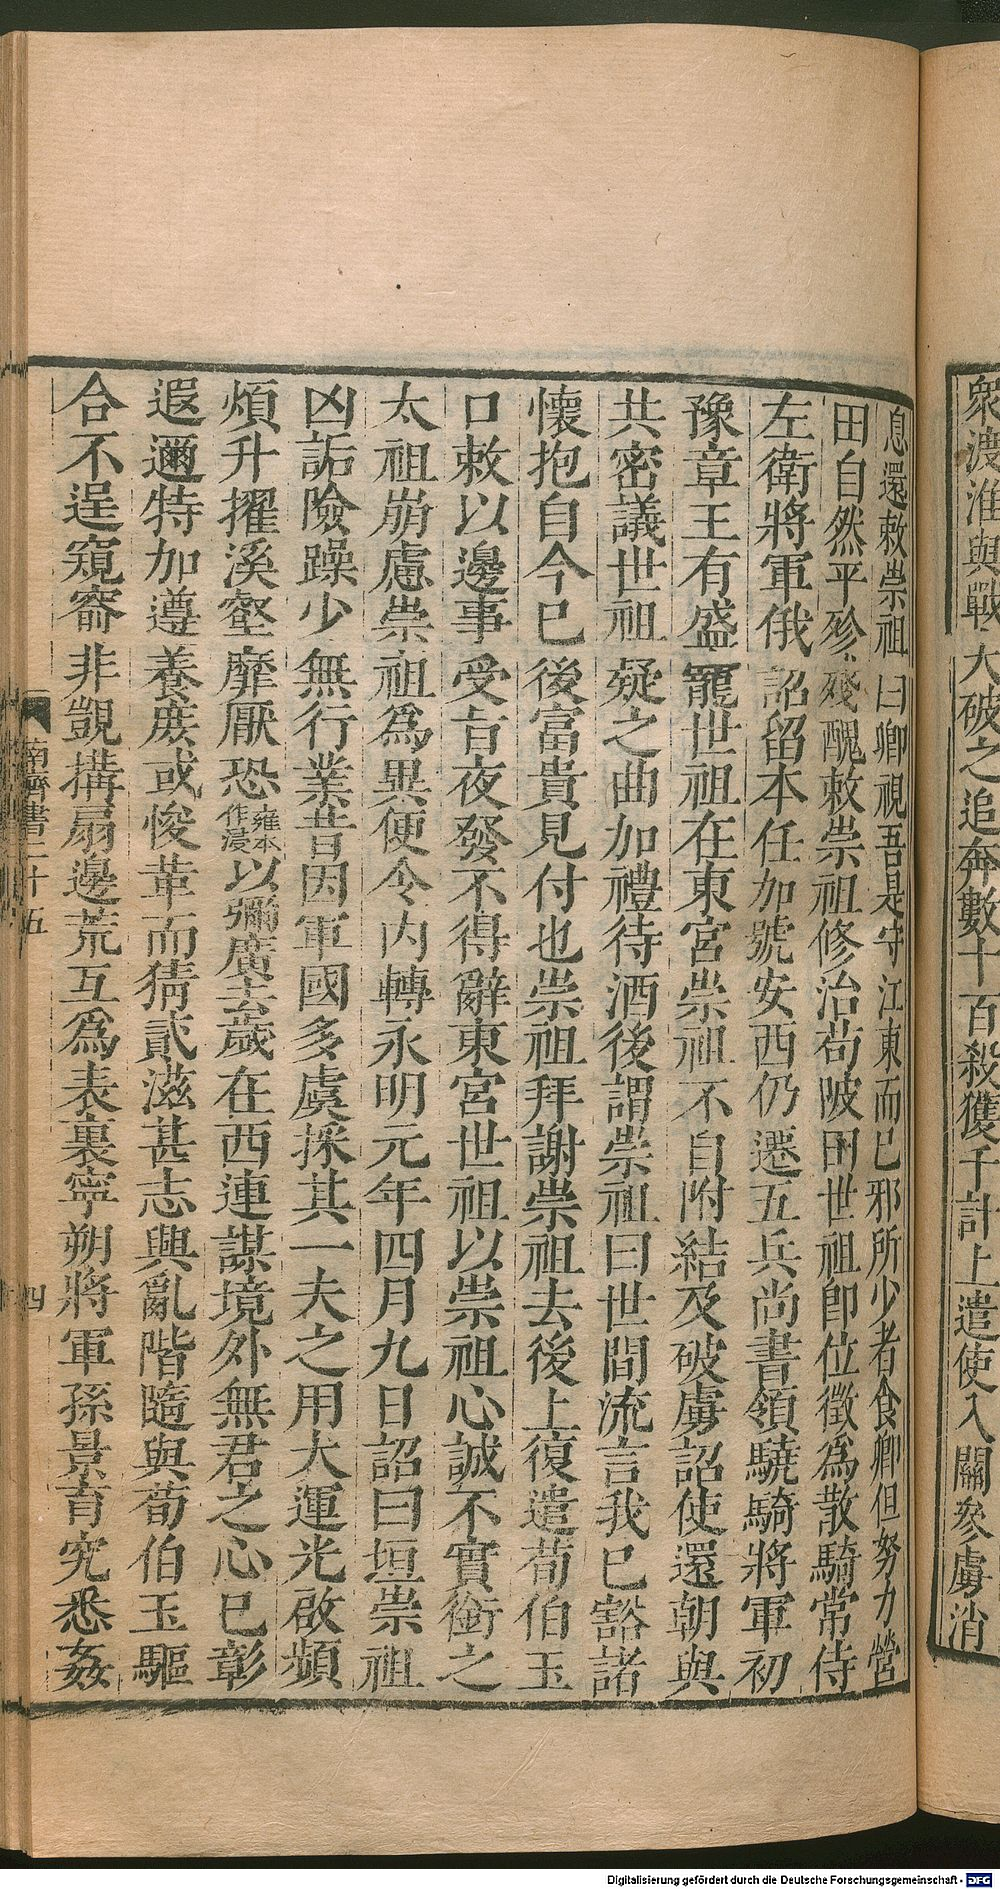 衆渡淮與戰大破之追奔數十百殺獲千計上遣使入關參虜消
息還敕崇祖曰卿視吾是守江東而已邪所少者食卿但努力營
田自然平殄殘醜敕崇祖修治芍陂田世祖即位徵爲散騎常侍
左衛將軍俄詔留本任加號安西仍遷五兵尚書領驍騎將軍初
豫章王有盛寵世祖在東宮崇祖不自附結及破虜詔使還朝與
共密議世祖疑之曲加禮待酒後謂崇祖曰世間流言我已豁諸
懷抱自今已後富貴見付也崇祖拜謝崇祖去後上復遣荀伯玉
口敕以邊事受旨夜發不得辭東宮世祖以崇祖心誠不實銜之
太祖崩慮崇祖爲異便令内轉永明元年四月九日詔曰垣崇祖
凶詬險躁少無行業昔因軍國多虞採其一夫之用大運光啟頻
煩升擢溪壑靡厭恐雍本作浸以彌廣去歲在西連謀境外無君之心已彰
遐邇特加遵養庶或悛革而猜貳滋甚志興亂階隨與荀伯玉驅
合不逞窺窬非覬搆扇邊荒互爲表裏寧朔將軍孫景育究悉姦
南齊書二十五
四
Digitalisierung gefördert durch die Deutsche Forschungsgemeinschaft - DFG